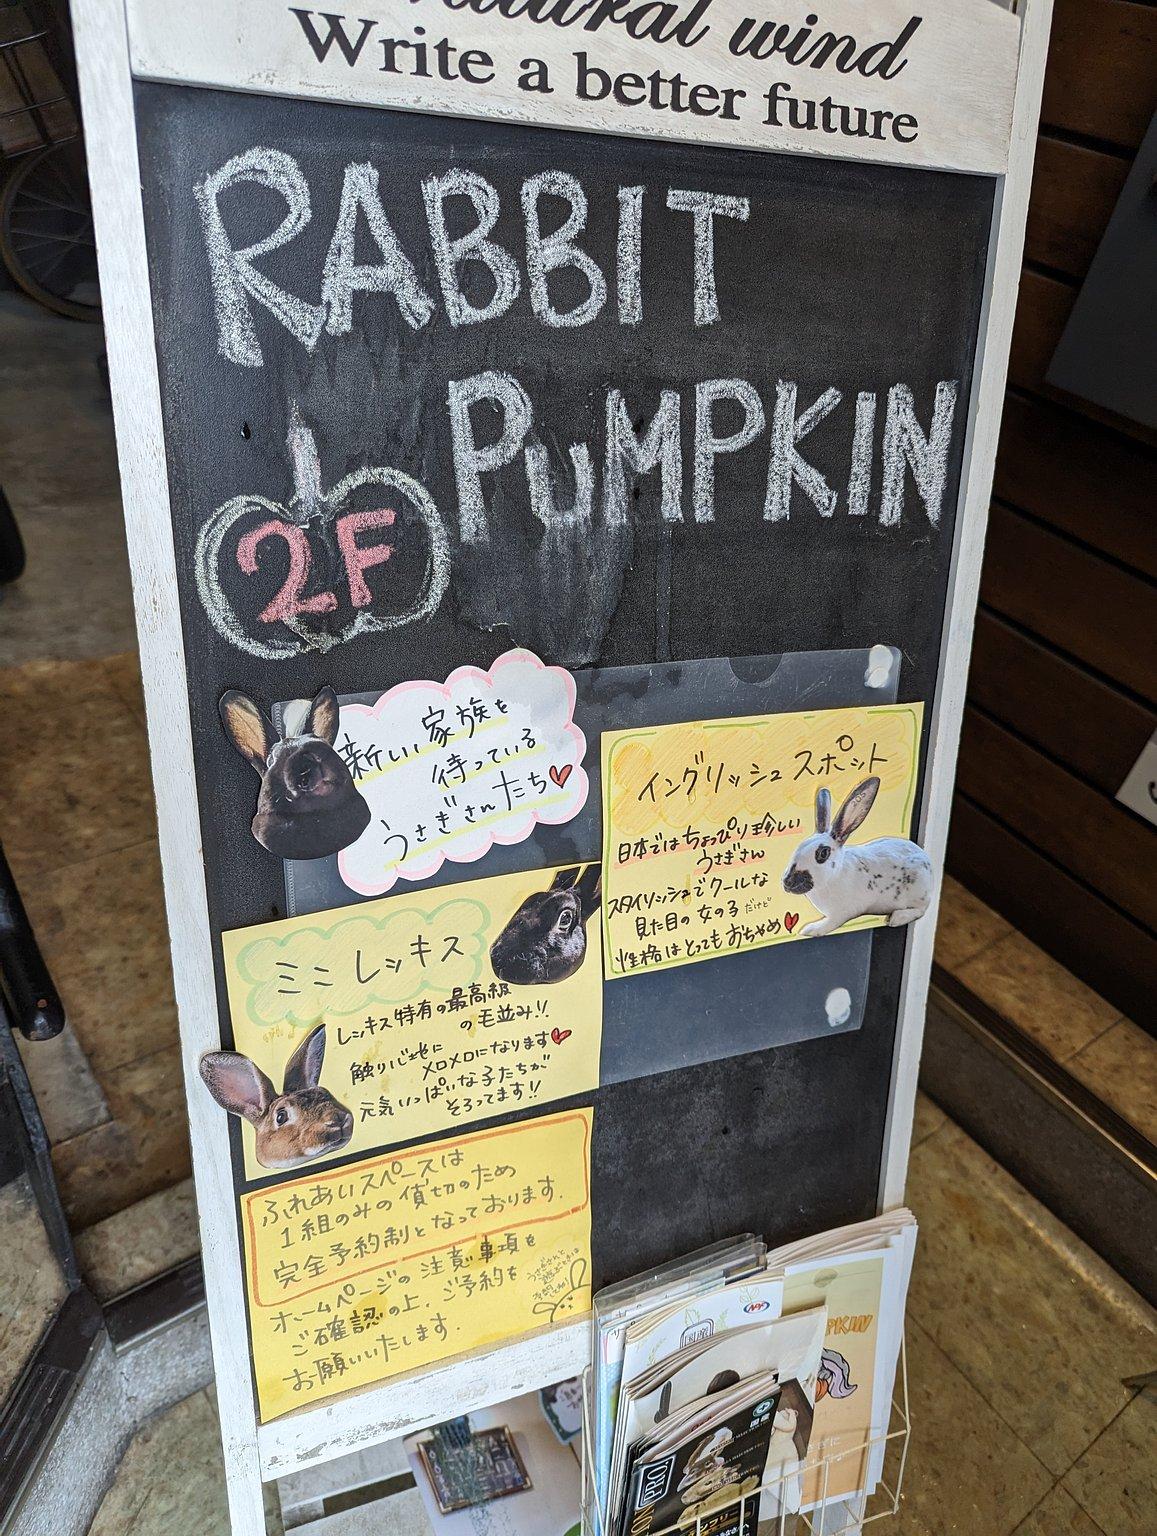 natural wind
Write a better future
RABBIT
PUMPKIN
2F
新しい家族を
待っている
うさぎさんたち
イングリッシュスポット
日本ではちょっぴり珍しい
うさぎさん
スタイリッシュでクールな
見た目の女の子だけど
性格はとってもおちゃめ
ミニレッキス
レッキス特有の最高級
の毛並み!!
触り心地に
メロメロになります
元気いっぱいな子たちが
そろってます!!
ふれあいスペースは
1組のみの貸切のため
完全予約制となっております.
ホームページの注意事項を
ご確認の上、ご予約を
お願いいたします.
PKIN
国産
PRO